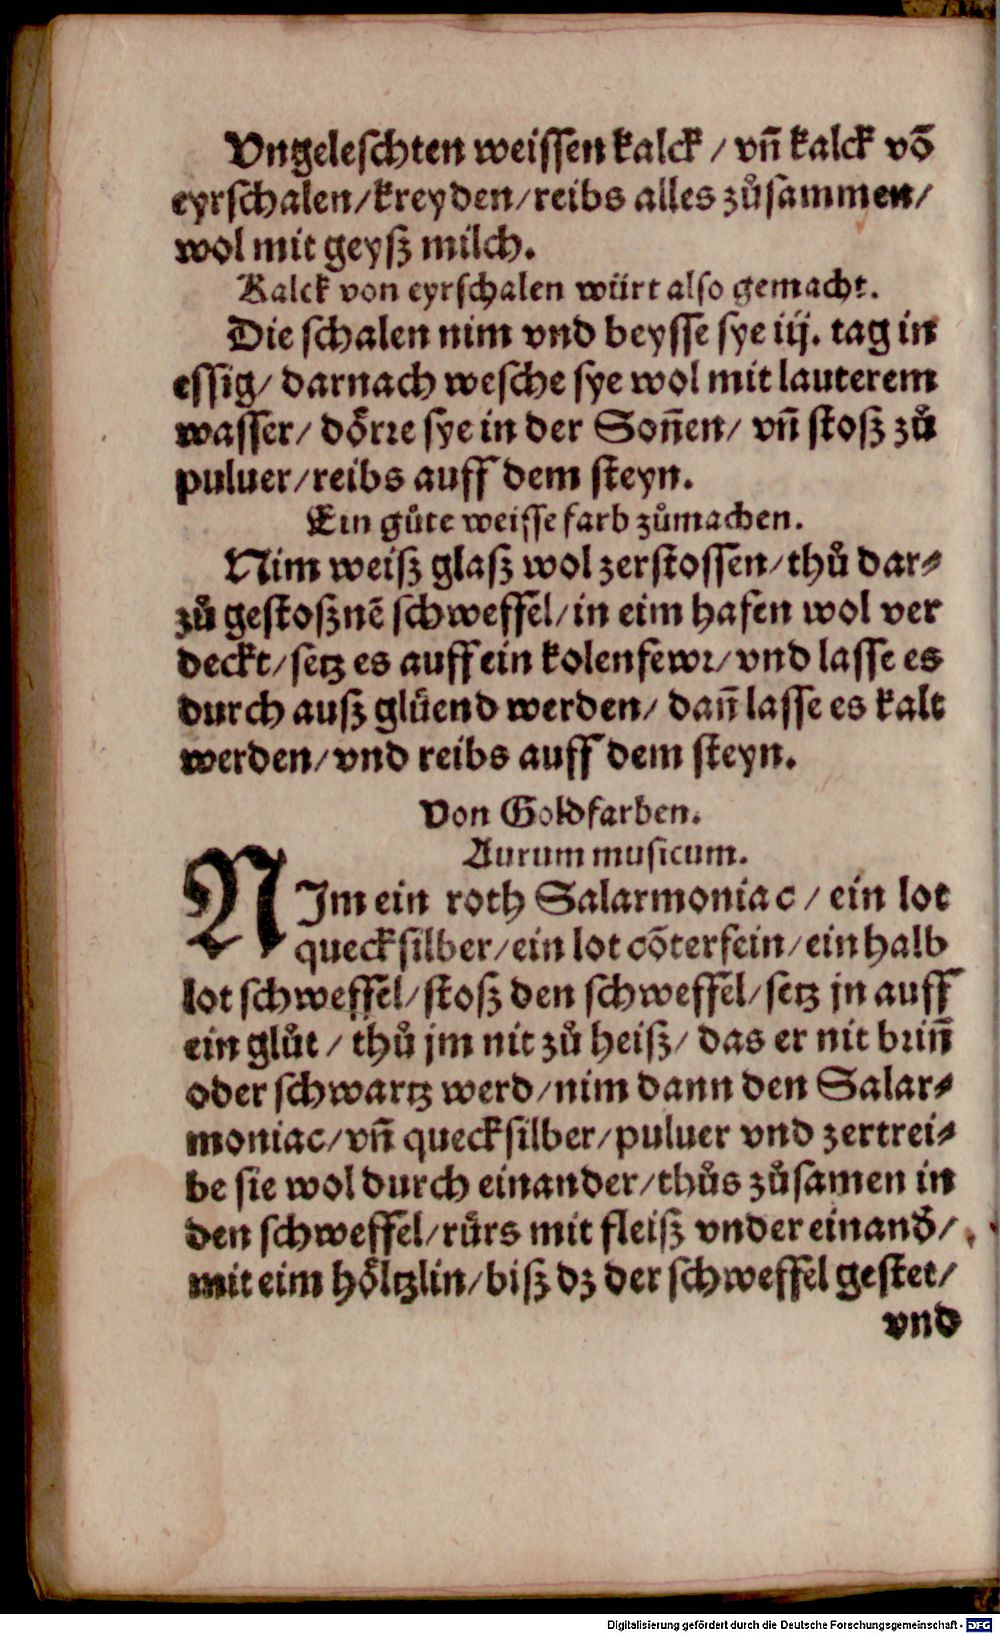 Vngeleschten weissen kalck / vñ kalck võ
eyrschalen/kreyden/reibs alles zůsammen/
wol mit geyß milch.
Kalck von eyrschalen würt also gemacht.
Die schalen nim vnd beysse sye iij. tag in
essig/ darnach wesche sye wol mit lauterem
wasser/ dörre sye in der Soñen/ vñ stoß zů
puluer/reibs auff dem steyn.
Ein gůte weisse farb zůmachen.
Nim weiß glaß wol zerstossen/thů dar-
zů gestoßnẽ schweffel/in eim hafen wol ver
deckt/setz es auff ein kolenfewr/vnd lasse es
durch auß glüend werden/ dañ lasse es kalt
werden/vnd reibs auff dem steyn.
Von Goldfarben.
Aurum musicum.
NIm ein roth Salarmoniac / ein lot
quecksilber/ein lot cõterfein/ein halb
lot schweffel/stoß den schweffel/setz jn auff
ein glůt / thů jm nit zů heiß/ das er nit briñ
oder schwartz werd/nim dann den Salar-
moniac/vñ quecksilber/puluer vnd zertrei-
be sie wol durch einander/thůs zůsamen in
den schweffel/rürs mit fleiß vnder einand̄/
mit eim höltzlin/biß dz der schweffel gestet/
vnd
Digitalisierung gefördert durch die Deutsche Forschungsgemeinschaft - DFG